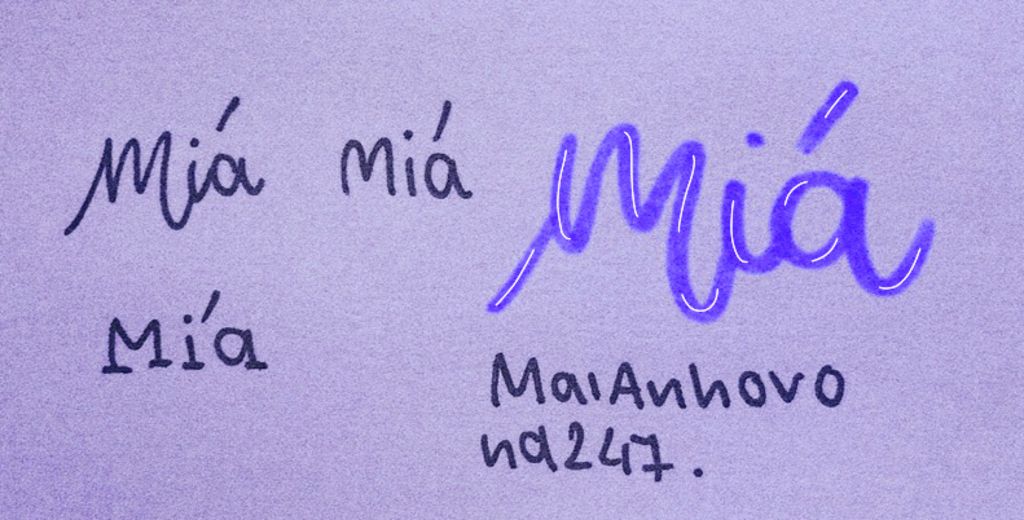 Miá
Miá
Miá
Miá
MaiAnhovo
na247.